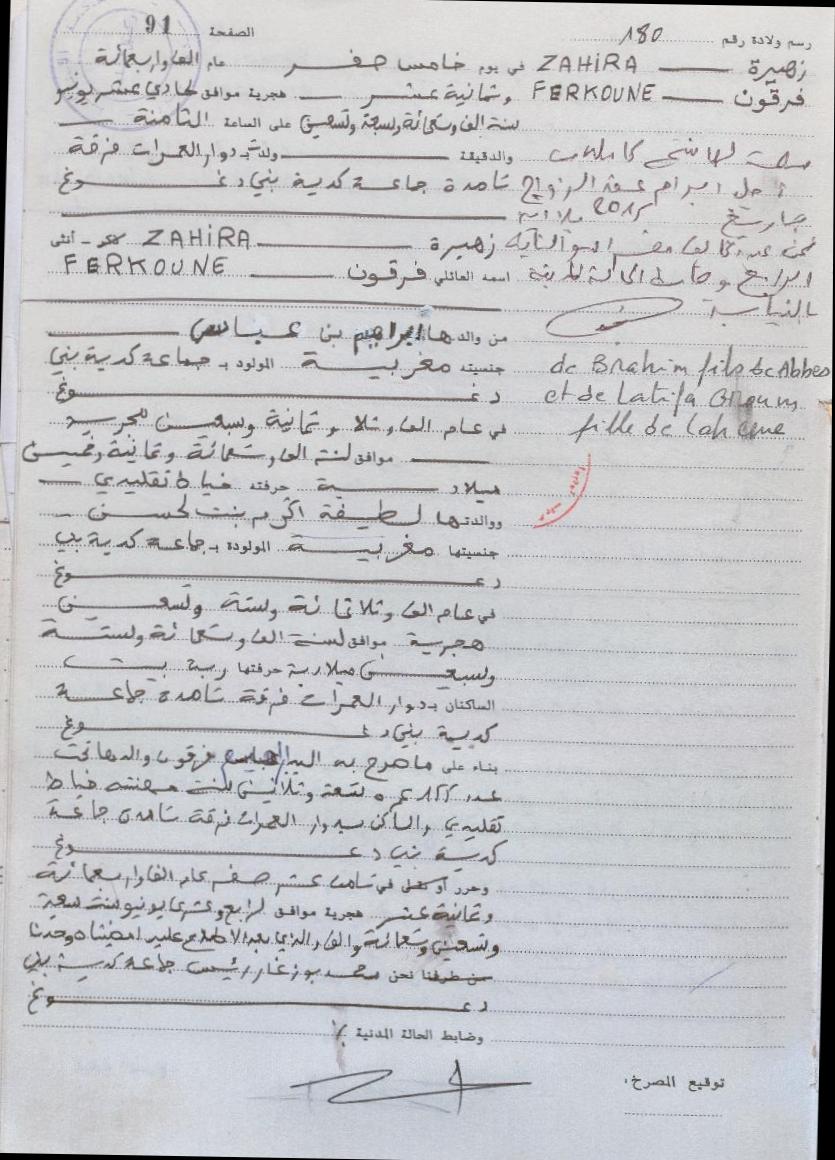 رسم ولادة رقم 180
الصفحة 91
زهيرة ZAHIRA في يوم خامس صفر عام الف واربعمائة
فرقون FERKOUNE وثمانية عشر هجرية موافق لحادي عشر يونيو
سنة الف وتسعمائة وسبعة وتسعين على الساعة الثامنة
والدقيقة ولدت بدوار العمرات فرقة
من اجل ابرام عقد الزواج
شاهدة جماعة كدية بني دغوغ
بتاريخ 2015
زهيرة ZAHIRA أنثى
اسمه العائلي فرقون FERKOUNE
بالنيابة
من والدها ابراهيم بن عباس
de Brahim fils de Abbes
et de Latifa Groum
fille de Lahcene
جنسيته مغربية المولود بـ جماعة كدية بني
دغوغ
في عام الف وثلاثمائة وثمانية وسبعين هجرية
موافق لسنة الف وتسعمائة وثمانية وخمسين
ميلادية حرفته خياط تقليدي
ووالدتها لطيفة بنت لحسن
جنسيتها مغربية المولودة بـ جماعة كدية بني
دغوغ
في عام الف وثلاثمائة وستة وتسعين
هجرية موافق لسنة الف وتسعمائة وستة
وسبعين ميلادية حرفتها ربة بيت
الساكنان بـ دوار العمرات فرقة شاهدة جماعة
كدية بني دغوغ
بناء على ما صرح به السيد ابراهيم فرقون والدها
تسعة وثلاثين سنة مهنته خياط
تقليدي والساكن بدوار العمرات فرقة شاهدة جماعة
كدية بني دغوغ
وحرر في ثامن عشر صفر عام الف واربعمائة
وثمانية عشر هجرية موافق لرابع وعشرين يونيو سنة سبعة
وتسعين وتسعمائة والف الذي بعد الاطلاع عليه امضيناه وحدنا
من طرفنا نحن محمد بوزغار رئيس جماعة كدية بني
دغوغ
وضابط الحالة المدنية
توقيع المصرح: